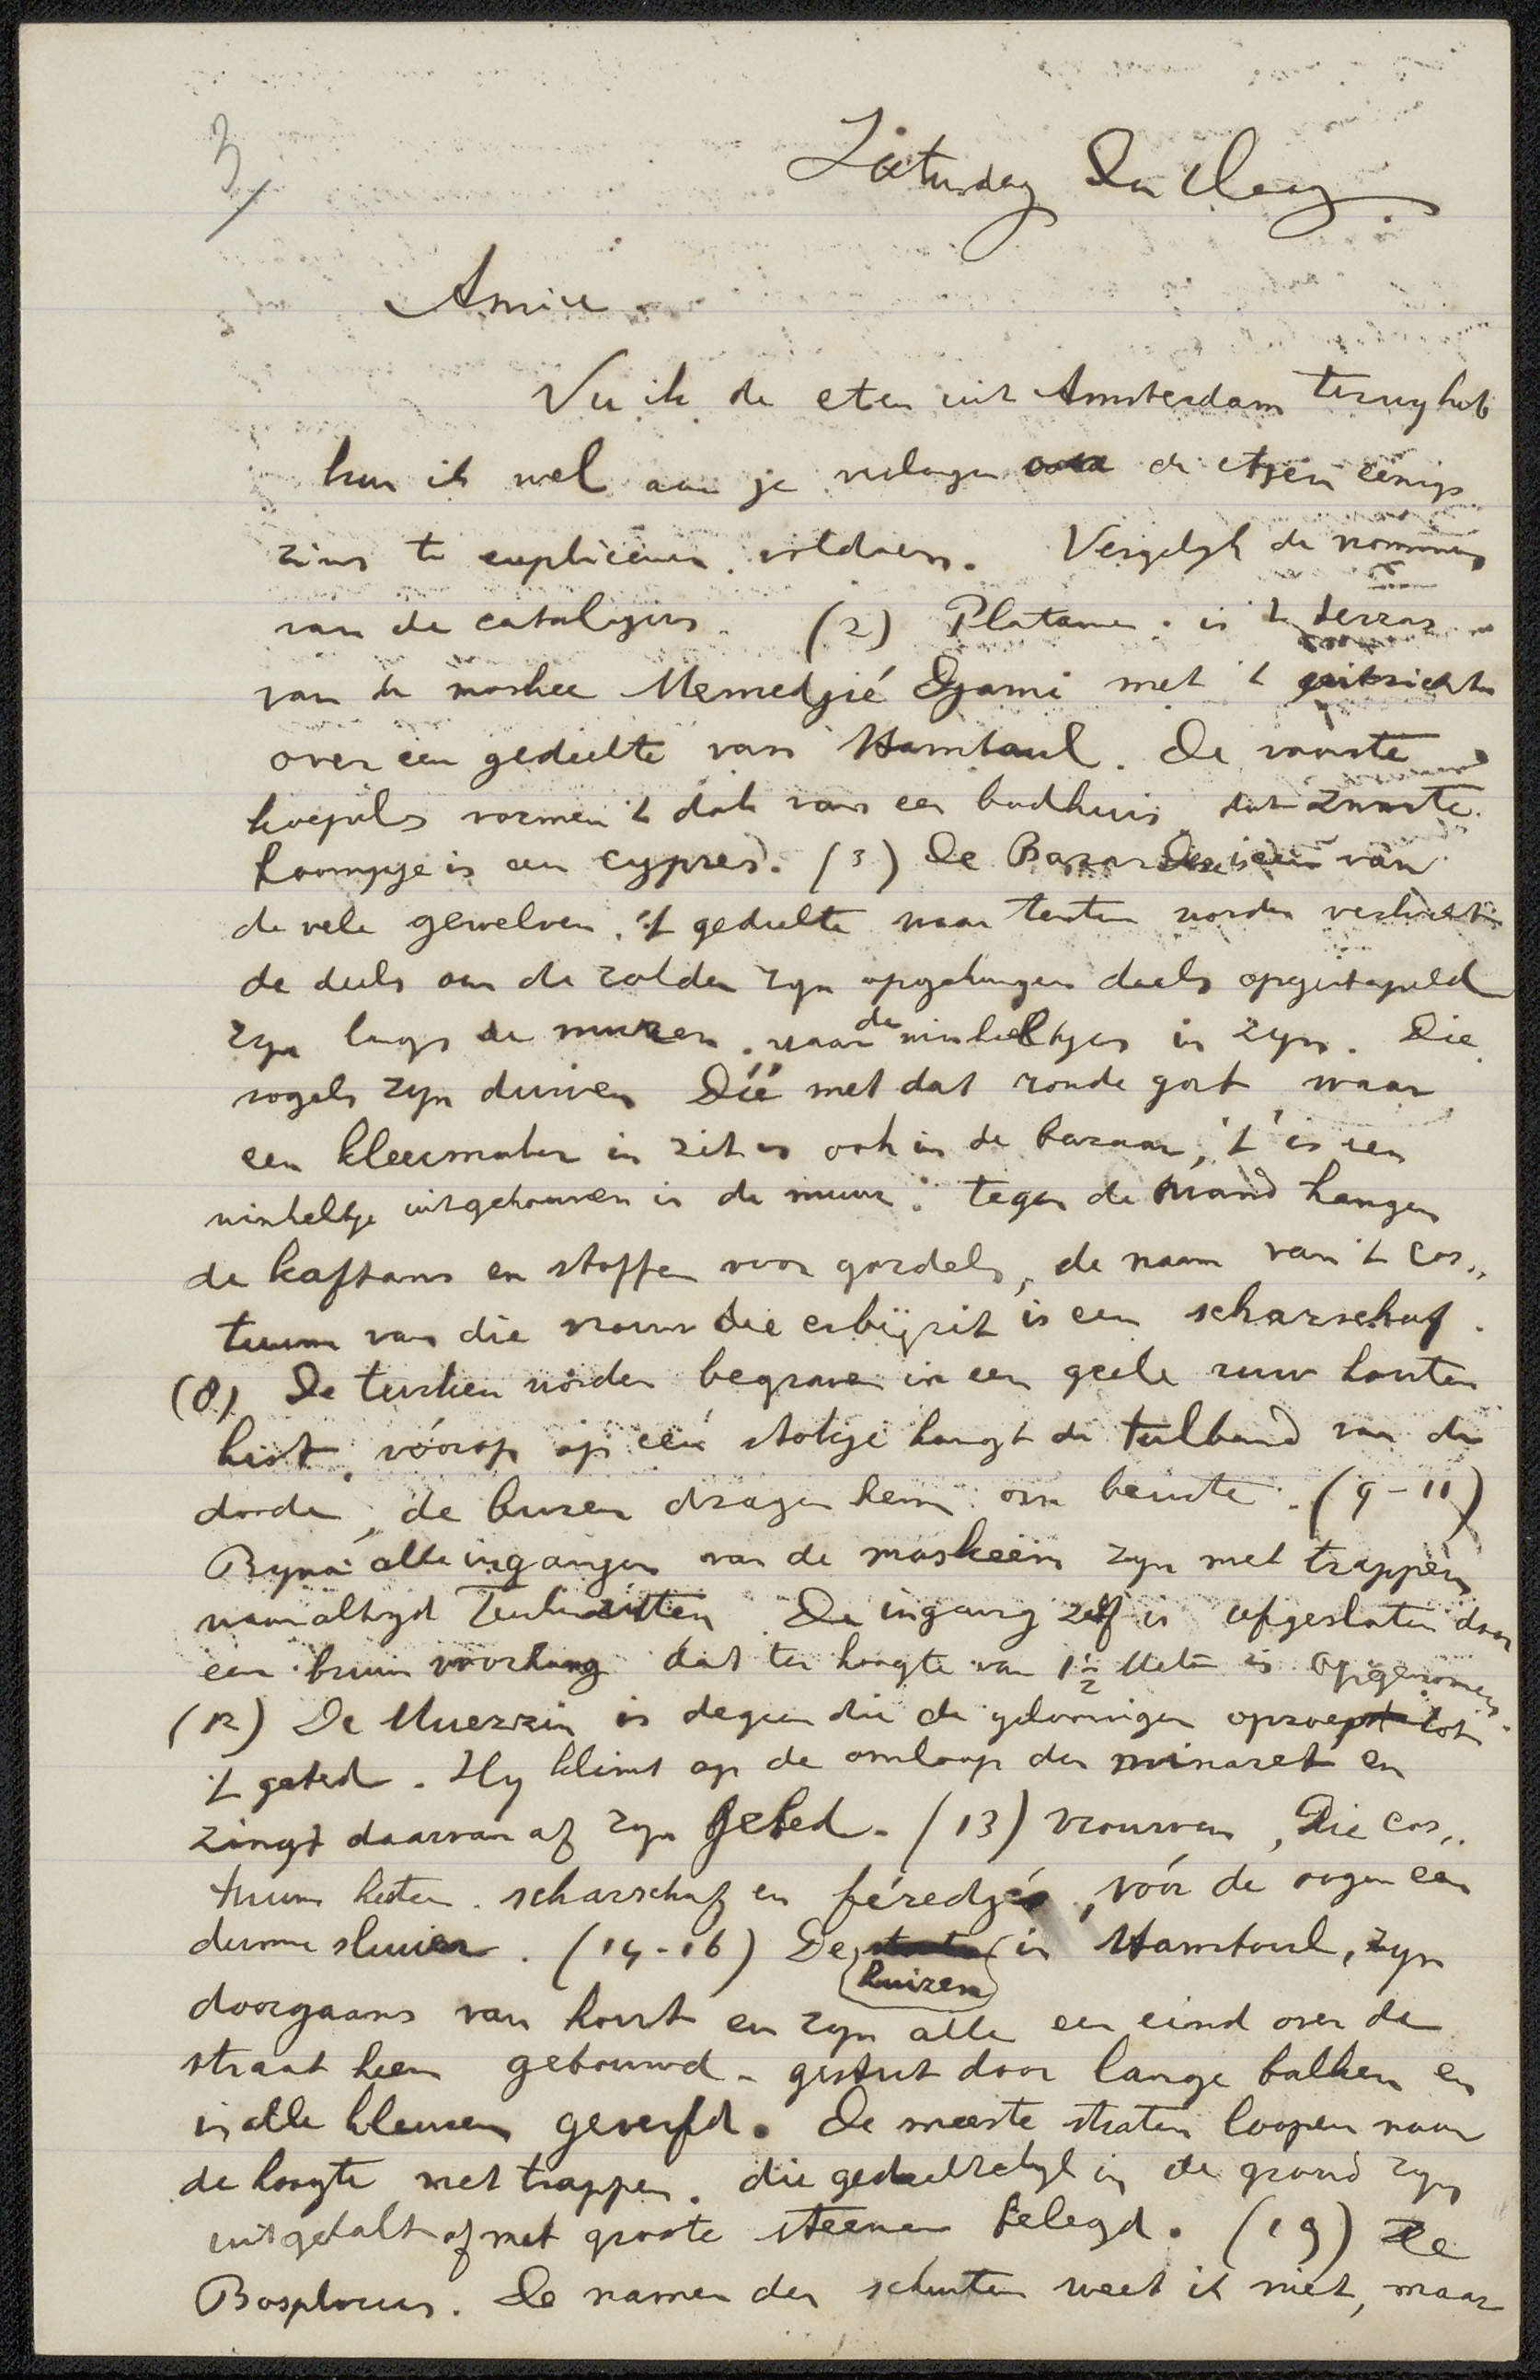 3/
Zaturdag Den Haag
Amice
Nu ik de etsen uit Amsterdam terug heb
kan ik wel aan je verlangen de etsen eenigs
zins te expliceeren voldoen. Vergelyk de nommers
van de catalogus. (2) Platanen. is 't terras
van de moskee Memedjié Djami met 't uitzicht
over een gedeelte van Stamboul. De voorste
koepels vormen 't dak van een badhuis dat zwarte
boompje is een cypres. (3) De Bazar Deze is een van
de vele gewelven. 't gedeelte waar tenten worden verkocht
de deels aan de zolder zyn opgehangen deels opgestapeld
zyn langs de muren. waar de winkeltjes in zyn. Die
vogels zyn duiven Díé met dat ronde gat waar
een kleermaker in zit is ook in de bazaar, 't is een
winkeltje uitgehouwen in de muur. tegen de wand hangen
de kaftans en stoffen voor gordels, de naam van 't cos„
tuum van die vrouw die erbij zit is een scharschaf.
(8) De turken worden begraven in een geele ruw houten
kist, vóórop op een stokje hangt de tulband van de
doode, de buren dragen hem om beurte. (9-11)
Byna alle ingangen van de moskeeën zyn met trappen
waar altyd Turken zitten De ingang zelf is afgesloten door
een bruin voorhang dat ter hoogte van 1½ Meter is opgenomen.
(12) De Muezzin is degeen die de geloovigen oproept tot
't gebed. Hy klimt op de omloop der minaret en
zingt daarvan af zyn gebed. (13) vrouwen, Die cos„
tuums heeten scharschaf en féredjé, vóór de oogen een
dunne sluier. (14-16) De huizen in Stamboul, zyn
doorgaans van hout en zyn alle een eind over de
straat heen gebouwd - gestut door lange balken en
in alle kleuren geverfd. De meeste straten loopen naar
de hoogte met trappen. die gedeeltelyk in de grond zyn
uitgehakt of met groote steenen belegd. (19) De
Bosphorus. De namen der schuiten weet ik niet, maar